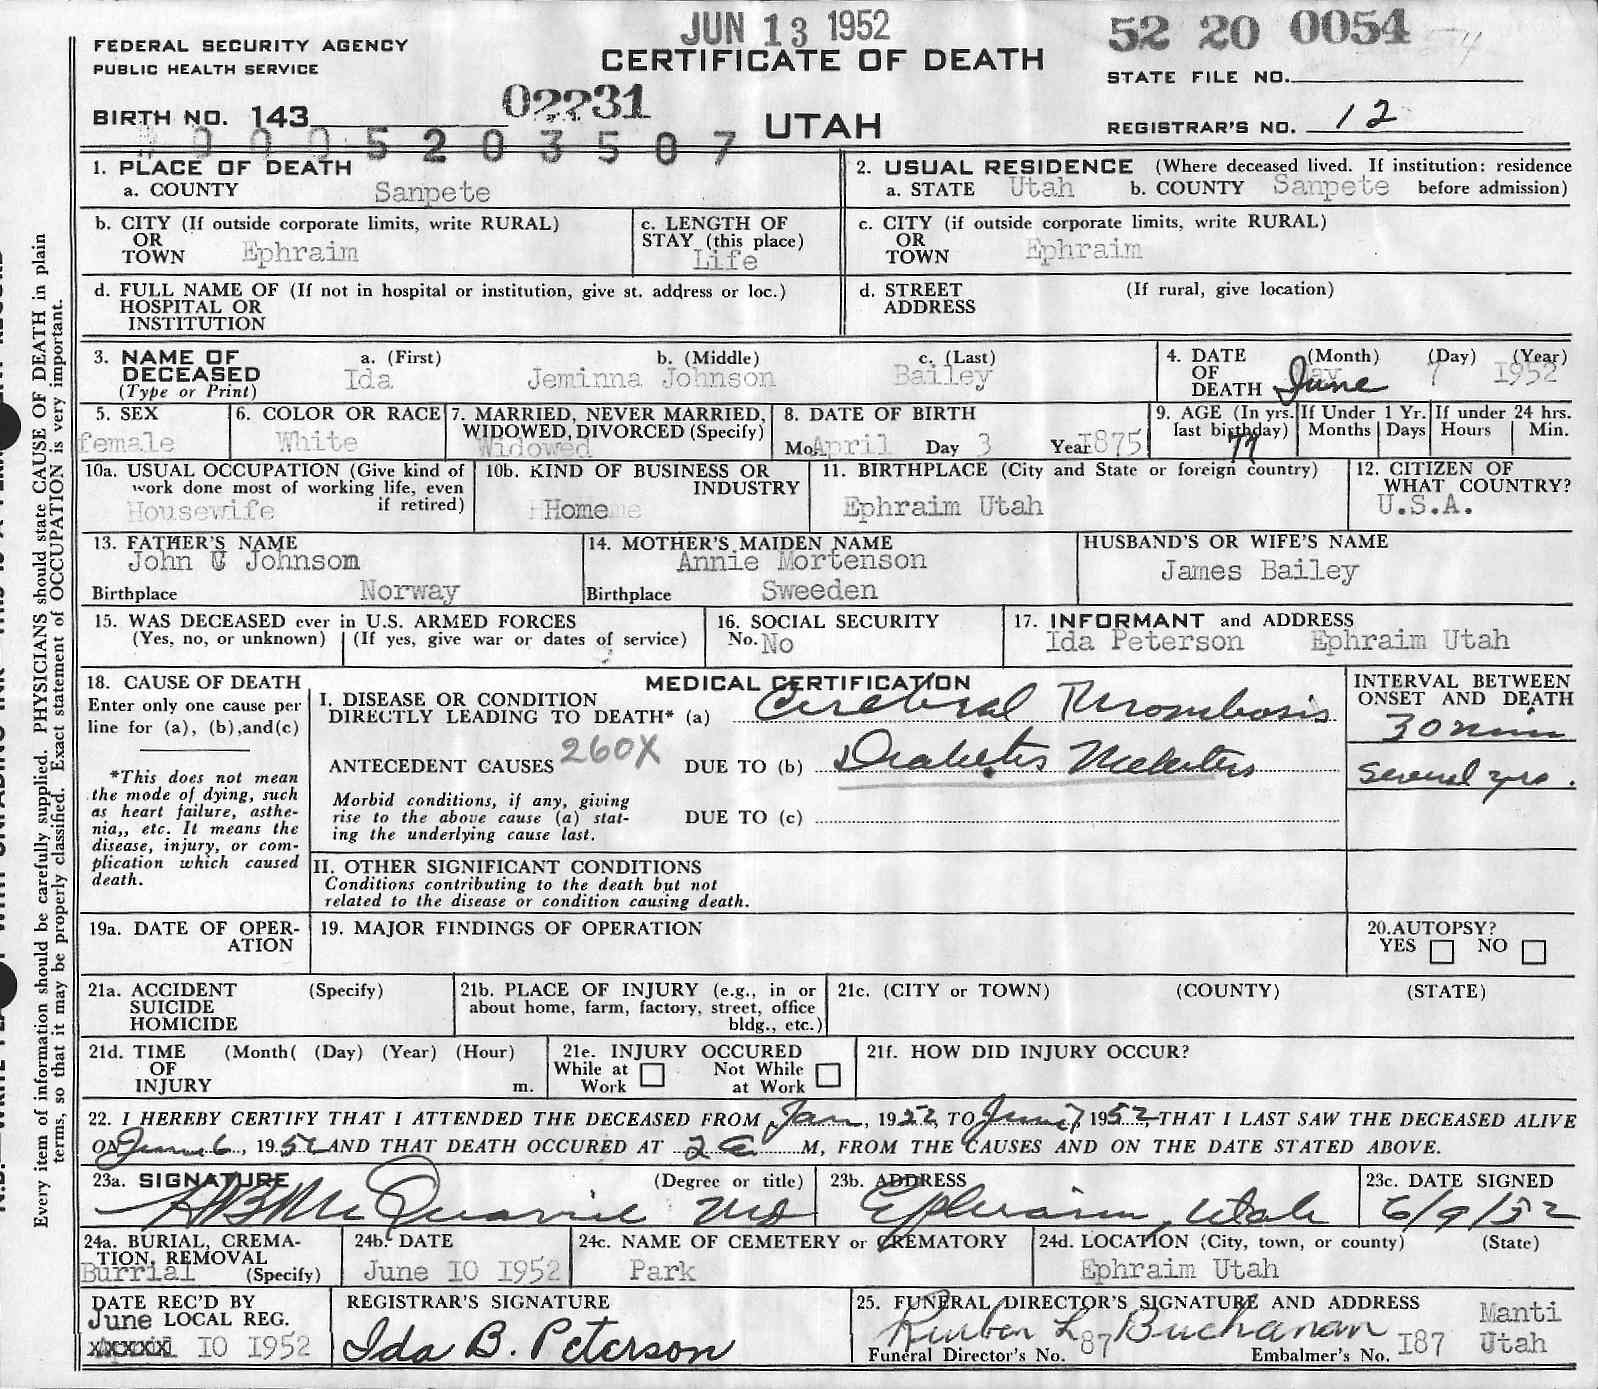 JUN 13 1952
52 20 0054
FEDERAL SECURITY AGENCY
PUBLIC HEALTH SERVICE
CERTIFICATE OF DEATH
STATE FILE NO.
BIRTH NO. 143
02231
UTAH
REGISTRAR'S NO. 12
0005203507
1. PLACE OF DEATH
a. COUNTY Sanpete
2. USUAL RESIDENCE (Where deceased lived. If institution: residence
a. STATE Utah b. COUNTY Sanpete before admission)
b. CITY (If outside corporate limits, write RURAL)
OR
TOWN Ephraim
c. LENGTH OF
STAY (this place)
Life
c. CITY (if outside corporate limits, write RURAL)
OR
TOWN Ephraim
d. FULL NAME OF (If not in hospital or institution, give st. address or loc.)
HOSPITAL OR
INSTITUTION
d. STREET (If rural, give location)
ADDRESS
3. NAME OF
DECEASED
(Type or Print)
a. (First) b. (Middle) c. (Last)
Ida Jeminna Johnson Bailey
4. DATE (Month) (Day) (Year)
OF
DEATH June 7 1952
5. SEX
female
6. COLOR OR RACE
White
7. MARRIED, NEVER MARRIED,
WIDOWED, DIVORCED (Specify)
Widowed
8. DATE OF BIRTH
Mo. April Day 3 Year 1875
9. AGE (In yrs.
last birthday)
77
If Under 1 Yr.
Months Days
If under 24 hrs.
Hours Min.
10a. USUAL OCCUPATION (Give kind of
work done most of working life, even
if retired)
Housewife
10b. KIND OF BUSINESS OR
INDUSTRY
Home
11. BIRTHPLACE (City and State or foreign country)
Ephraim Utah
12. CITIZEN OF
WHAT COUNTRY?
U.S.A.
13. FATHER'S NAME
John C Johnsom
Birthplace Norway
14. MOTHER'S MAIDEN NAME
Annie Mortenson
Birthplace Sweeden
HUSBAND'S OR WIFE'S NAME
James Bailey
15. WAS DECEASED ever in U.S. ARMED FORCES
(Yes, no, or unknown) (If yes, give war or dates of service)
16. SOCIAL SECURITY
No. No
17. INFORMANT and ADDRESS
Ida Peterson Ephraim Utah
18. CAUSE OF DEATH
Enter only one cause per
line for (a), (b),and(c)
*This does not mean
the mode of dying, such
as heart failure, asthe-
nia,, etc. It means the
disease, injury, or com-
plication which caused
death.
MEDICAL CERTIFICATION
I. DISEASE OR CONDITION
DIRECTLY LEADING TO DEATH* (a) Cerebral Thrombosis
ANTECEDENT CAUSES 260X DUE TO (b) Diabetes Melletus
Morbid conditions, if any, giving
rise to the above cause (a) stat-
ing the underlying cause last.
DUE TO (c)
INTERVAL BETWEEN
ONSET AND DEATH
30 min
Several yrs.
II. OTHER SIGNIFICANT CONDITIONS
Conditions contributing to the death but not
related to the disease or condition causing death.
19a. DATE OF OPER-
ATION
19. MAJOR FINDINGS OF OPERATION
20.AUTOPSY?
YES NO
21a. ACCIDENT (Specify)
SUICIDE
HOMICIDE
21b. PLACE OF INJURY (e.g., in or
about home, farm, factory, street, office
bldg., etc.)
21c. (CITY or TOWN) (COUNTY) (STATE)
21d. TIME (Month( (Day) (Year) (Hour)
OF
INJURY m.
21e. INJURY OCCURED
While at Not While
Work at Work
21f. HOW DID INJURY OCCUR?
22. I HEREBY CERTIFY THAT I ATTENDED THE DECEASED FROM Jan, 1952, TO June 7, 1952, THAT I LAST SAW THE DECEASED ALIVE
ON June 6, 1952 AND THAT DEATH OCCURED AT 2 a M, FROM THE CAUSES AND ON THE DATE STATED ABOVE.
23a. SIGNATURE (Degree or title)
McQuarrie MD
23b. ADDRESS
Ephraim, Utah
23c. DATE SIGNED
6/9/52
24a. BURIAL, CREMA-
TION, REMOVAL
Burrial (Specify)
24b. DATE
June 10 1952
24c. NAME OF CEMETERY or CREMATORY
Park
24d. LOCATION (City, town, or county) (State)
Ephraim Utah
DATE REC'D BY
June LOCAL REG.
10 1952
REGISTRAR'S SIGNATURE
Ida B. Peterson
25. FUNERAL DIRECTOR'S SIGNATURE AND ADDRESS
Reuben L Buchanan
Manti
Utah
Funeral Director's No. 87 Embalmer's No. 187
Every item of information should be carefully supplied. PHYSICIANS should state CAUSE OF DEATH in plain
terms, so that it may be properly classified. Exact statement of OCCUPATION is very important.